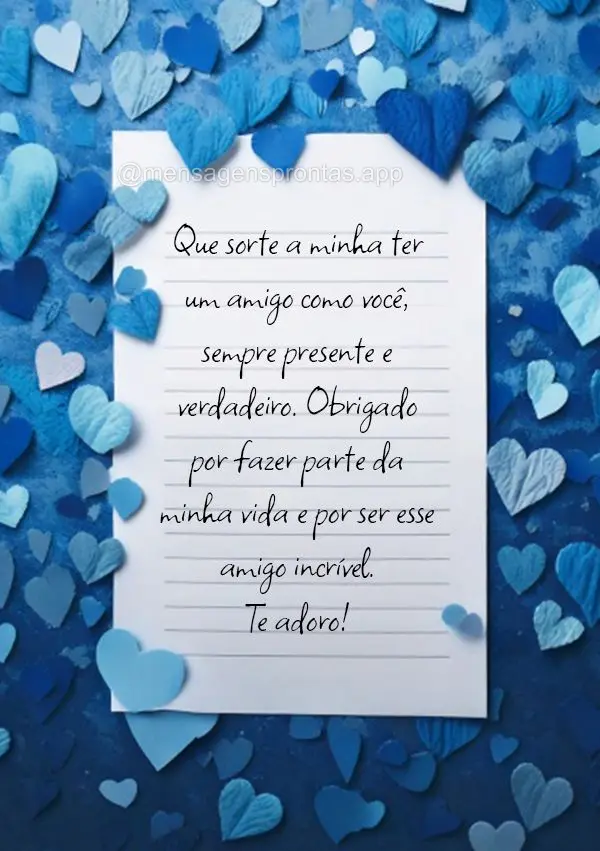 @mensagensprontas.app
Que sorte a minha ter
um amigo como você,
sempre presente e
verdadeiro. Obrigado
por fazer parte da
minha vida e por ser esse
amigo incrível.
Te adoro!